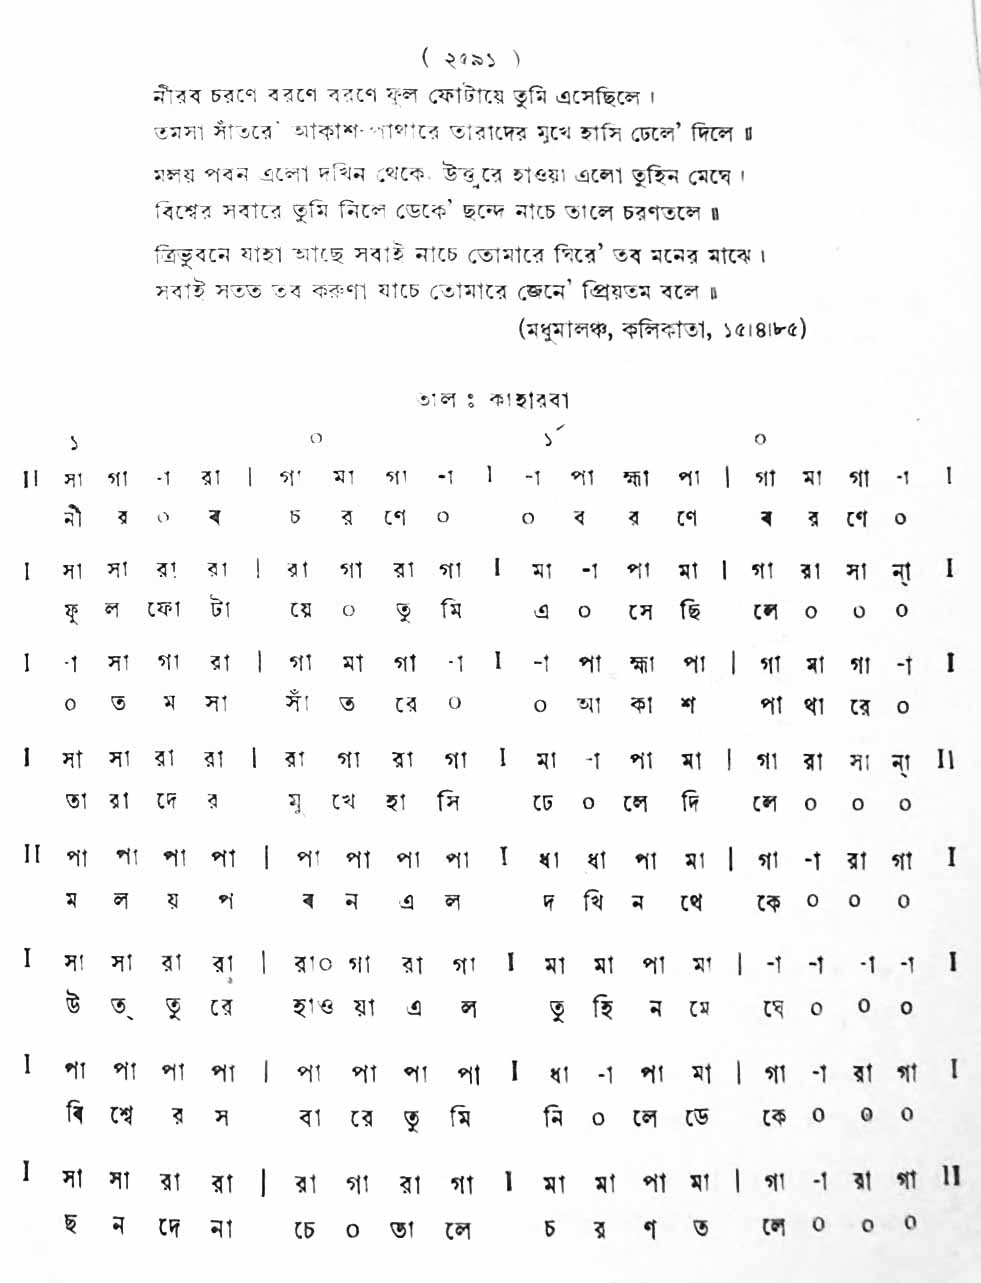 ( ২৫৯১ )
নীরব চরণে বরণে বরণে ফুল ফোটায়ে তুমি এসেছিলে ।
তমসা সাঁতরে' আকাশ-পাথারে তারাদের মুখে হাসি ঢেলে' দিলে ॥
মলয় পবন এলো দখিন থেকে, উত্তুরে হাওয়া এলো তুহিন মেঘে ।
বিশ্বের সবারে তুমি নিলে ডেকে' ছন্দে নাচে তালে চরণতলে ॥
ত্রিভুবনে যাহা আছে সবাই নাচে তোমারে ঘিরে' তব মনের মাঝে ।
সবাই সতত তব করুণা যাচে তোমারে জেনে' প্রিয়তম বলে ॥
(মধুমালঞ্চ, কলিকাতা, ১৫।৪।৮৫)
তাল ঃ কাহারবা
১ ০ ১´ ০
II সা গা -া রা | গা মা গা -া I -া পা হ্মা পা | গা মা গা -া I
নী র ০ ব চ র ণে ০ ০ ব র ণে ব র ণে ০
I সা সা রা রা | রা গা রা গা I মা -া পা মা | গা রা সা ন্া I
ফু ল ফো টা য়ে ০ তু মি এ ০ সে ছি লে ০ ০ ০
I -া সা গা রা | গা মা গা -া I -া পা হ্মা পা | গা মা গা -া I
০ ত ম সা সাঁ ত রে ০ ০ আ কা শ পা থা রে ০
I সা সা রা রা | রা গা রা গা I মা -া পা মা | গা রা সা ন্া II
তা রা দে র মু খে হা সি ঢে ০ লে দি লে ০ ০ ০
II পা পা পা পা | পা পা পা পা I ধা ধা পা মা | গা -া রা গা I
ম ল য় প ব ন এ ল দ খি ন থে কে ০ ০ ০
I সা সা রা রা | রা০ গা রা গা I মা মা পা মা | -া -া -া -া I
উ ত্ তু রে হাও য়া এ ল তু হি ন মে ঘে ০ ০ ০
I পা পা পা পা | পা পা পা পা I ধা -া পা মা | গা -া রা গা I
বি শ্বে র স বা রে তু মি নি ০ লে ডে কে ০ ০ ০
I সা সা রা রা | রা গা রা গা I মা মা পা মা | গা -া রা গা II
ছ ন দে না চে ০ তা লে চ র ণ ত লে ০ ০ ০